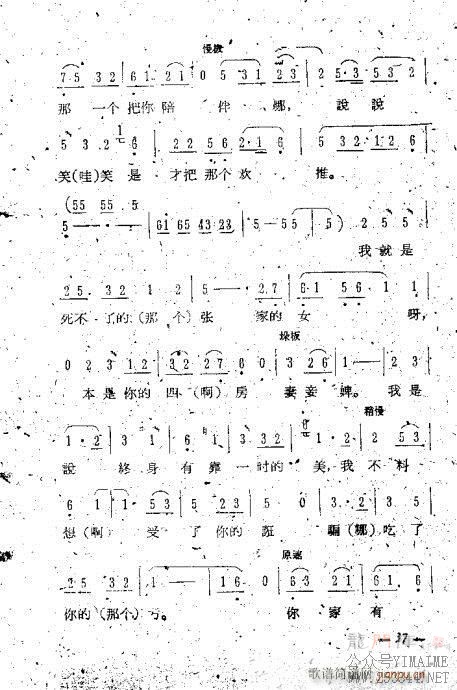 慢板
7 5 3 2 | 6 1 2 1 | 0 5 3 1 | 2 3 | 2 5·3 5 3 2 |
那 一个 把你 陪 伴 娜， 說 說
5 3 2 1 6 | 2 2 5 6 2·6 | 5 3 2 1 2 6 |
笑(哇)笑 是 才把 那个 欢 推。
(55 55 5 5
5 - - - | 61 65 43 23 | 5 - 55 | 5 - ) | 2 5 5 |
我 就 是
2 5 3 2 | 1 2 | 5 - - 2 7 | 6·1 5 6 1·
死不了的(那个)张 家的 女 呀，
垛板
0 2 3 1 2 | 3 2 2 7 6 | 0 3 2 6 | 1 - | 2·3 |
本是你的四(啊)房 妻妾 婢。 我是
稍慢
1·2 | 3 1 | 6·1 | 3 3 2 | 1·2 | 2 5 3 |
說 終身 有靠 一时的 美，我 不料
6 1 | 1 5 3 | 2 5 3 | 5 0 | 3·2 | 3·5 |
想(啊) 受 了你的 誆 騙(娜)吃了
原速
2 5 3 2 | 1 - | 1 - | 1 6 0 | 6 3 2 1 | 6 6 1 6 5 |
你的(那个)亏。 你 家 有
— 37 —
公众号YIMAIME
歌谱简谱网